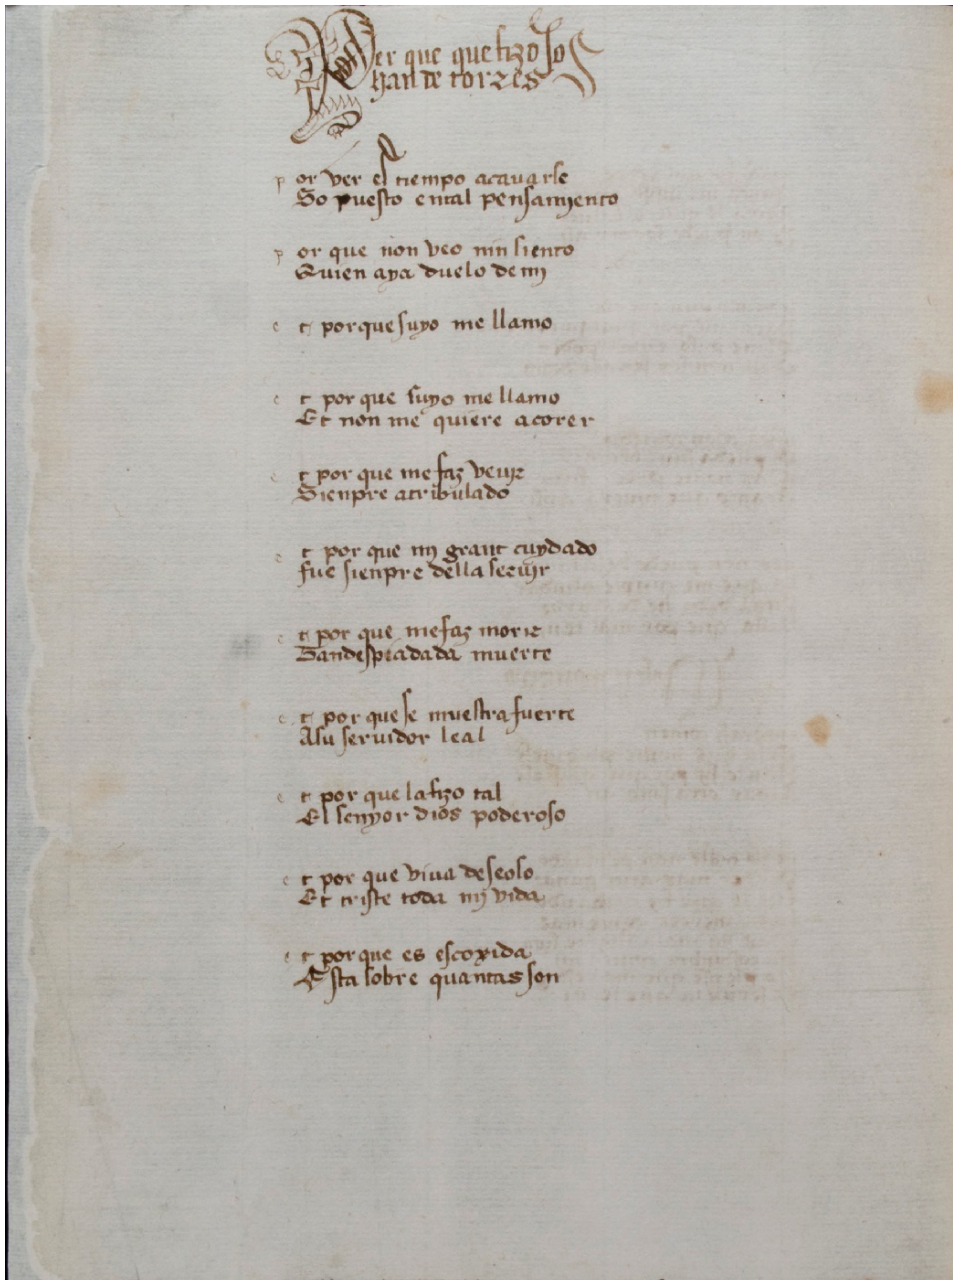 Per que que fizo Jo
han de torres
por ver el tiempo acauarse
So puesto ental pensamiento
por que non veo nin siento
Quien aya duelo de mj
et por que suyo me llamo
et por que suyo me llamo
Et non me quiere acorer
et por que me faz veujr
Sienpre atribulado
et por que mj grant cuydado
fue sienpre della serujr
et por que me faz morir
Dandespiadada muerte
et por que se muestra fuerte
Asu seruidor leal
et por que la fizo tal
El senyor dios poderoso
et por que viua deseoso
Et triste toda mj vida
et por que es escoxida
Esta sobre quantas son